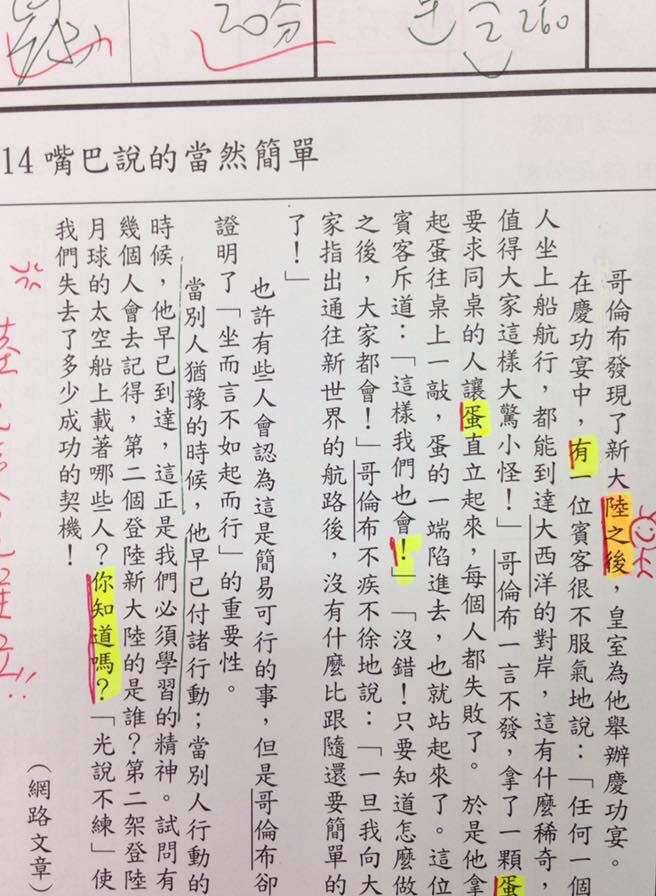 20分
260
14 嘴巴說的當然簡單
哥倫布發現了新大陸之後，皇室為他舉辦慶功宴。
在慶功宴中，有一位賓客很不服氣地說：「任何一個
人坐上船航行，都能到達大西洋的對岸，這有什麼稀奇
值得大家這樣大驚小怪！」哥倫布一言不發，拿了一顆蛋
要求同桌的人讓蛋直立起來，每個人都失敗了。於是他拿
起蛋往桌上一敲，蛋的一端陷進去，也就站起來了。這位
賓客斥道：「這樣我們也會！」「沒錯！只要知道怎麼做
之後，大家都會！」哥倫布不疾不徐地說：「一旦我向大
家指出通往新世界的航路後，沒有什麼比跟隨還要簡單的
了！」
也許有些人會認為這是簡易可行的事，但是哥倫布卻
證明了「坐而言不如起而行」的重要性。
當別人猶豫的時候，他早已付諸行動；當別人行動的
時候，他早已到達，這正是我們必須學習的精神。試問有
幾個人會去記得，第二個登陸新大陸的是誰？第二架登陸
月球的太空船上載著哪些人？你知道嗎？「光說不練」使
我們失去了多少成功的契機！
（網路文章）